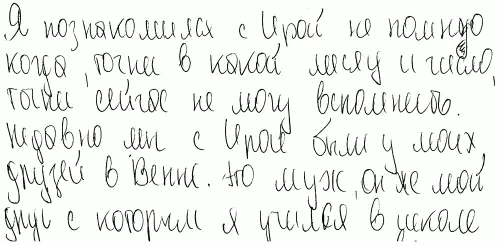 Я познакомился с Ирой не помню
когда, точно в какой месяц и число
точно сейчас не могу вспомнить.
недавно мы с Ирой были у моих
друзей в Вене. Но муж, он же мой
друг с которым я учился в школе